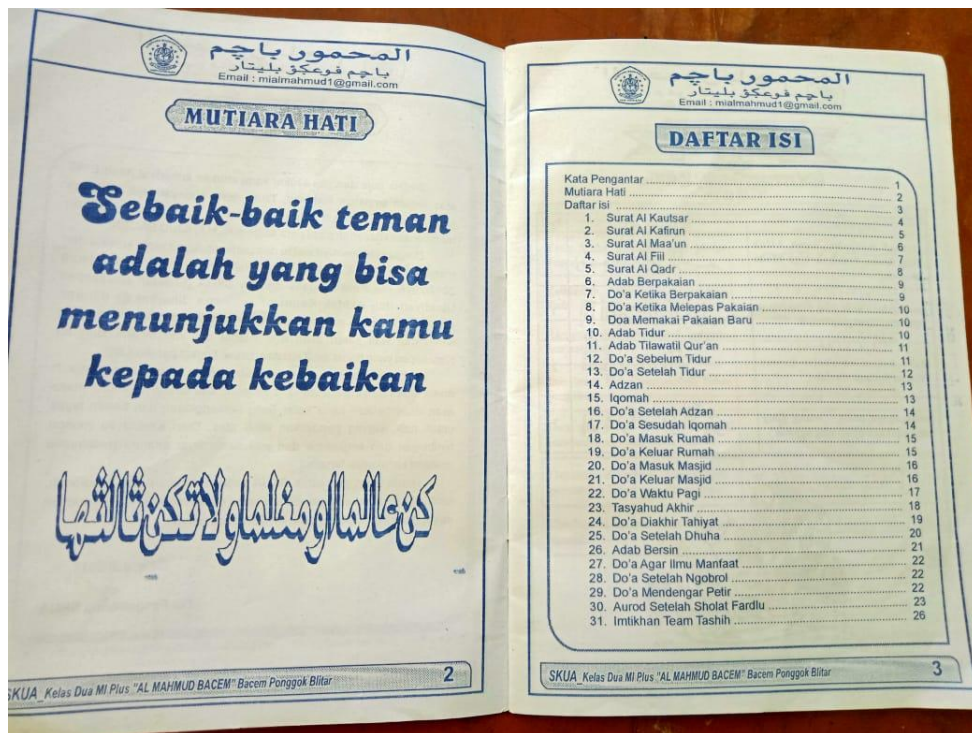 المحمور باچم
باچم فوعكؤ بليتار
Email : mialmahmud1@gmail.com
MUTIARA HATI
Sebaik-baik teman
adalah yang bisa
menunjukkan kamu
kepada kebaikan
كن عالما او متعلما ولا تكن ثالثها
SKUA_Kelas Dua MI Plus "AL MAHMUD BACEM" Bacem Ponggok Blitar 2
المحمور باچم
باچم فوعكؤ بليتار
Email : mialmahmud1@gmail.com
DAFTAR ISI
Kata Pengantar ........ 1
Mutiara Hati ........ 2
Daftar isi ........ 3
1. Surat Al Kautsar ........ 4
2. Surat Al Kafirun ........ 5
3. Surat Al Maa'un ........ 6
4. Surat Al Fiil ........ 7
5. Surat Al Qadr ........ 8
6. Adab Berpakaian ........ 9
7. Do'a Ketika Berpakaian ........ 9
8. Do'a Ketika Melepas Pakaian ........ 10
9. Doa Memakai Pakaian Baru ........ 10
10. Adab Tidur ........ 10
11. Adab Tilawatil Qur'an ........ 11
12. Do'a Sebelum Tidur ........ 11
13. Do'a Setelah Tidur ........ 12
14. Adzan ........ 13
15. Iqomah ........ 13
16. Do'a Setelah Adzan ........ 14
17. Do'a Sesudah Iqomah ........ 14
18. Do'a Masuk Rumah ........ 15
19. Do'a Keluar Rumah ........ 15
20. Do'a Masuk Masjid ........ 16
21. Do'a Keluar Masjid ........ 16
22. Do'a Waktu Pagi ........ 17
23. Tasyahud Akhir ........ 18
24. Do'a Diakhir Tahiyat ........ 19
25. Do'a Setelah Dhuha ........ 20
26. Adab Bersin ........ 21
27. Do'a Agar Ilmu Manfaat ........ 22
28. Do'a Setelah Ngobrol ........ 22
29. Do'a Mendengar Petir ........ 22
30. Aurod Setelah Sholat Fardlu ........ 23
31. Imtikhan Team Tashih ........ 26
SKUA_Kelas Dua MI Plus "AL MAHMUD BACEM" Bacem Ponggok Blitar 3